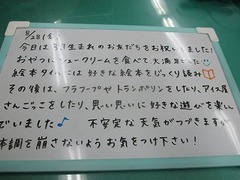 8/28(金)
今日は8月生まれのお友だちをお祝いしました!
おやつにシュークリームを食べて大満足でした
絵本タイムには好きな絵本をじっくり読み
その後は、フラフープやトランポリンをしたり、アイス屋
さんごっこをしたり、思い思いに好きな遊びを楽しん
でいました♪ 不安定な天気がつづきますが
体調を崩さないようお気をつけ下さい!